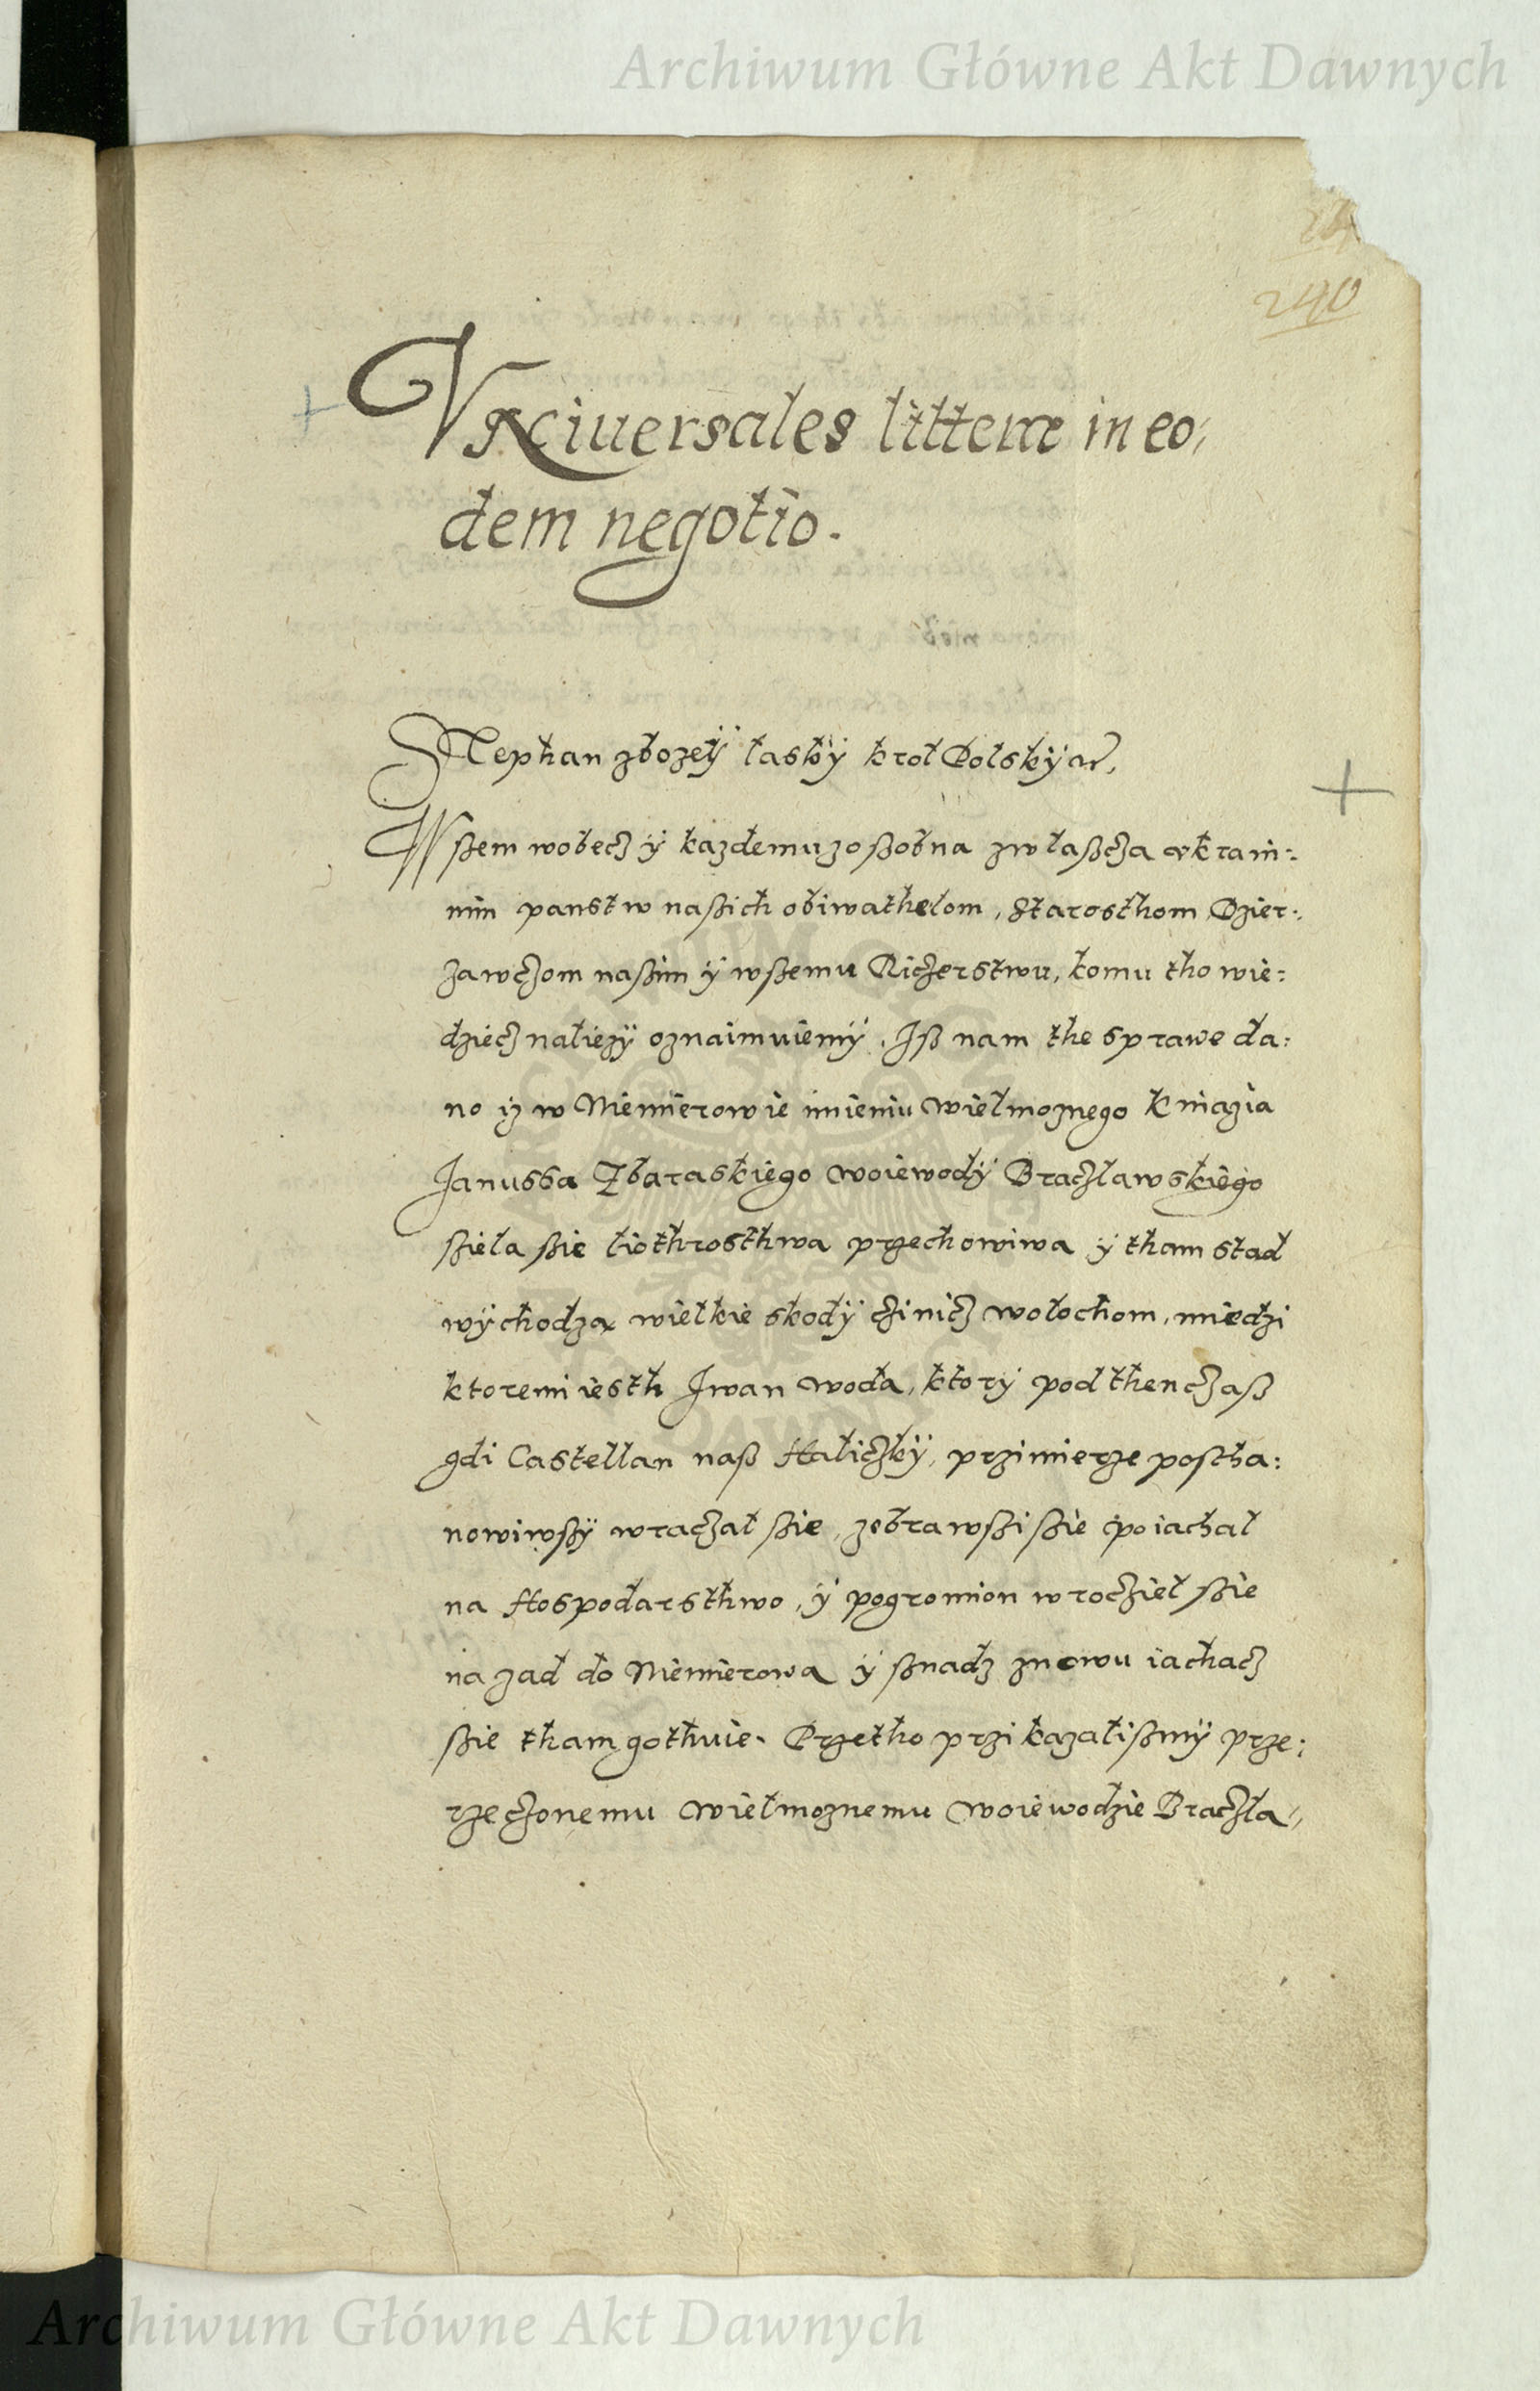 Archiwum Główne Akt Dawnych
240
Vniuersales litterae in eo,
dem negotio.
Stephan zbozeÿ łaskÿ krol Polskÿ etc,
Wßem wobecz ÿ kazdemu zoßobna zwłaßcza vkrain:
nim panstw naßich obiwathelom, Starosthom Dzier:
zawczom naßim ÿ wßemu Riczerstwu, komu tho wie:
dziecz należÿ oznaimuiemÿ. Iß nam the sprawe da:
no iz w Niemierowie imieniu wielmoznego kniazia
Janussa Zbaraskiego woiewodÿ Braczławskiego
ßiela ßie liothrosthwa przechowiwa ÿ tham stad
wÿchodza wielkie skodÿ czinicz wołochom, miedzi
ktoremi iesth Jwan woda, ktorÿ pod then czaß
gdi Castellan naß Haliczkÿ, przimierze postha:
nowiwßÿ wraczał ßie, zebrawßi ßie poiachał
na Hospodarsthwo, ÿ pogromion wrocziel ßie
na zad do Niemierowa ÿ ßnadz znowu iachacz
ßie tham gothuie. Przetho przikazalißmÿ prze:
rzeczonemu wielmoznemu woiewodzie Braczła,
Archiwum Główne Akt Dawnych